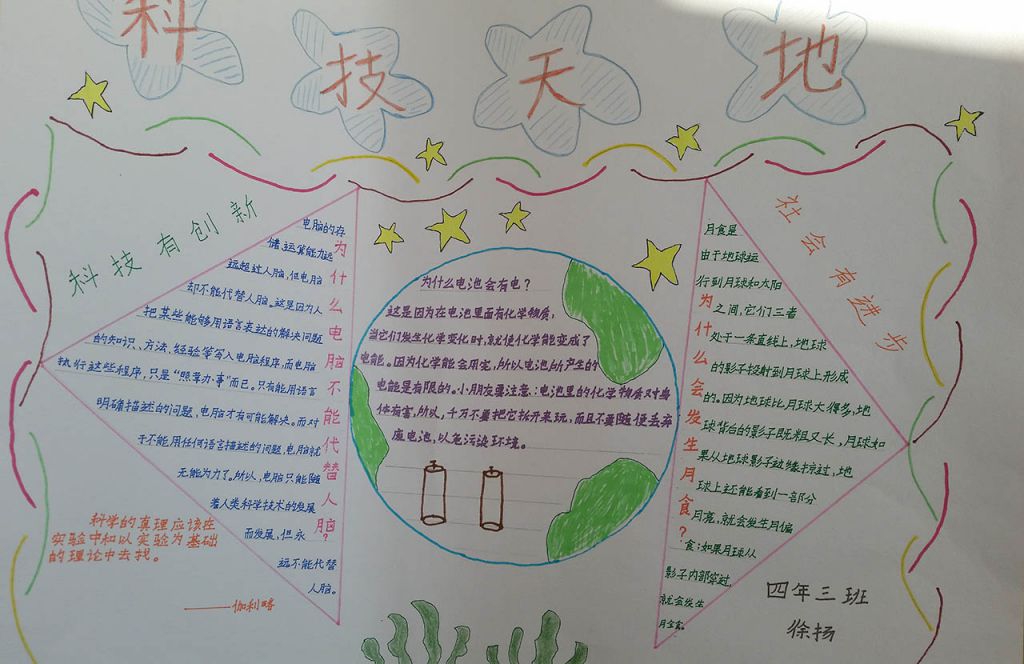 科技天地
科技有创新
为什么电脑不能代替人脑?
电脑的存
储运算能力远
远超过人脑,但电脑
却不能代替人脑。这是因为人
把某些能够用语言表达的解决问题
的知识、方法、经验等写入电脑程序,而电脑
执行这些程序,只是“照章办事”而已。只有能用语言
明确描述的问题,电脑才有可能解决。而对
于不能用任何语言描述的问题,电脑就
无能为力了。所以,电脑只能随
着人类科学技术的发展
而发展,但永
远不能代替
人脑。
科学的真理应该在
实验中和以实验为基础
的理论中去找。
——伽利略
为什么电池会有电?
这是因为在电池里面有化学物质,
当它们发生化学变化时,就使化学能变成了
电能。因为化学能会用完,所以电池所产生的
电能是有限的。小朋友要注意:电池里的化学物质对身
体有害,所以,千万不要把它拆开来玩,而且不要随便丢弃
废电池,以免污染环境。
社会有进步
为什么会发生月食?
月食是
由于地球运
行到月球和太阳
之间,它们三者
处于一条直线上,地球
的影子投射到月球上形成
的。因为地球比月球大得多,地
球背后的影子既粗又长,月球如
果从地球影子边缘掠过,地
球上还能看到一部分
月亮,就会发生月偏
食;如果月球从
影子内部穿过,
就会发生
月全食。
四年三班
徐扬